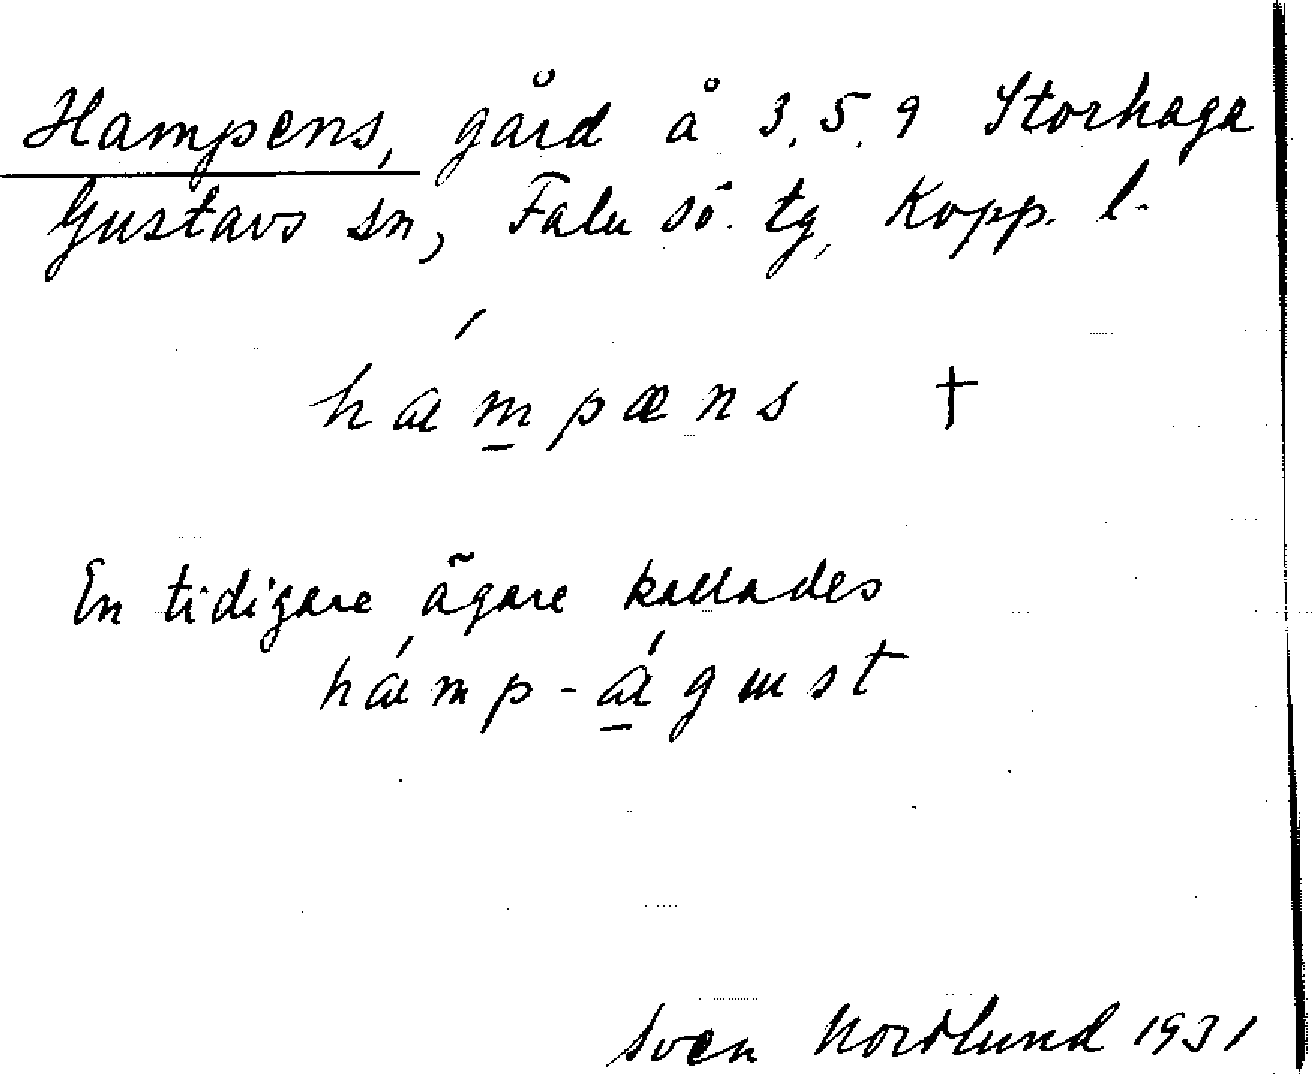 Hampens, gård å 3, 5, 9 Storhaga
Gustavs sn, Falu sö. tg, Kopp. l.
hámpæns †
En tidigare ägare kallades
hámp-águst
Sven Nordlund 1931